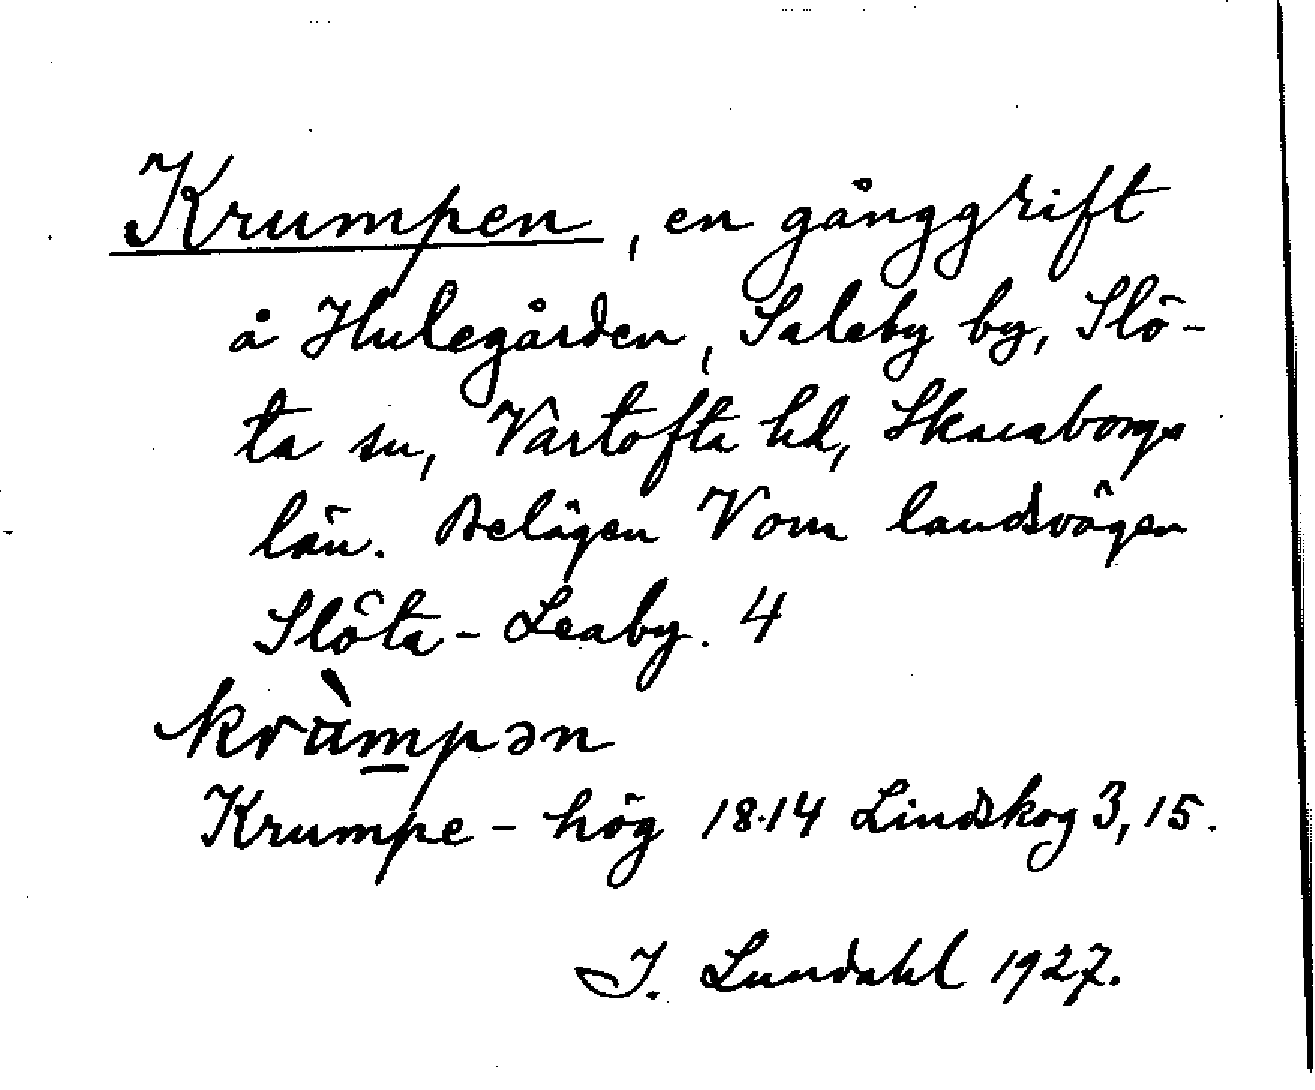 Krumpen, en gånggrift
å Hulegården, Saleby by, Slö-
ta sn, Vartofta hd, Skaraborgs
län. Belägen V om landsvägen
Slöta - Leaby. 4
kràmpən
Krumpe - hög 1814 Lindskog 3, 15.
I. Lundahl 1927.